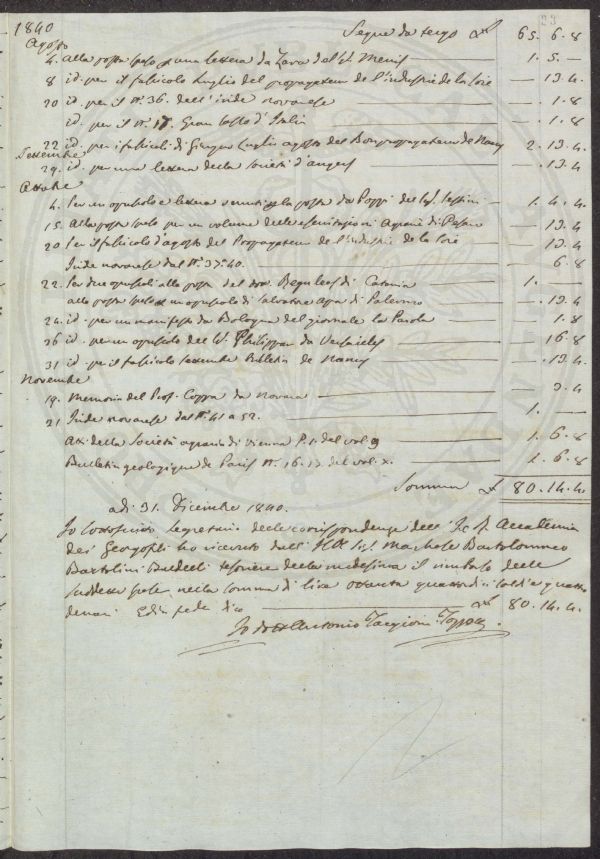 1840 29
Agosto Segue da tergo £ 65. 6. 8
4. alla posta spese per una lettera da Zara dal Sig. Menis 1. 5. —
8 id. per il fascicolo Luglio del propagateur de l'industrie de la Soie — 13. 4
20 id. per il N.° 36. dell'iride novarese — 1. 8
id. per il N.° 17. Gran Tutto d'Italia — 1. 8
22 id. per i fascicoli di Giugno Luglio agosto del Bon propagateur de Nancy 2. 13. 4
Settembre
29. id. per una lettera della società d'angers — . 13. 4
Ottobre
4. Per un opuscolo e lettera venuti per la posta da Poppi del Sig. 1. 4. 4.
15. alla posta spese per un volume delle esercitazioni Agrarie di Pesaro — 13. 4
20 Per il fascicolo d'agosto del Propagateur de l'industrie de la Soie — 13. 4
Iride novarese dal N.° 37. 40. 6. 8
22. Per due opuscoli alla posta del di Catania 1. —
alla posta spese un opuscolo di Salvatore di Palermo — . 13. 4
24. id. per un manifesto da Bologna del giornale la Parola — 1. 8
26 id. per un opuscolo del Sig. Philippar da Versailles — 16. 8
31 id. per il fascicolo settembre Bulletin de Nancy — . 13. 4
Novembre
19. Memoria del Prof. Coppa da Novara — 3. 4
21 Iride novarese dal N.° 41 a 52. 1. —
Atti della Società agraria di Vienna P. 1. del vol. 9 1. 6. 8
Bulletin geologique de Paris N.° 16. 17. del vol. X. 1. 6. 8
Somma £ 80. 14. 4.
a dì 31. Dicembre 1840.
Io sottoscritto Segretario delle corrispondenze dell' I. e R. Accademia
dei Georgofili ho ricevuto dall' Ill. Sig. Marchese Bartolommeo
Bartolini Baldelli tesoriere della medesima il rimborso delle
suddette spese nella somma di lire ottanta quattordici soldi e quattro
denari. E in fede dico £ 80. 14. 4.
Io Antonio Targioni Tozzetti.